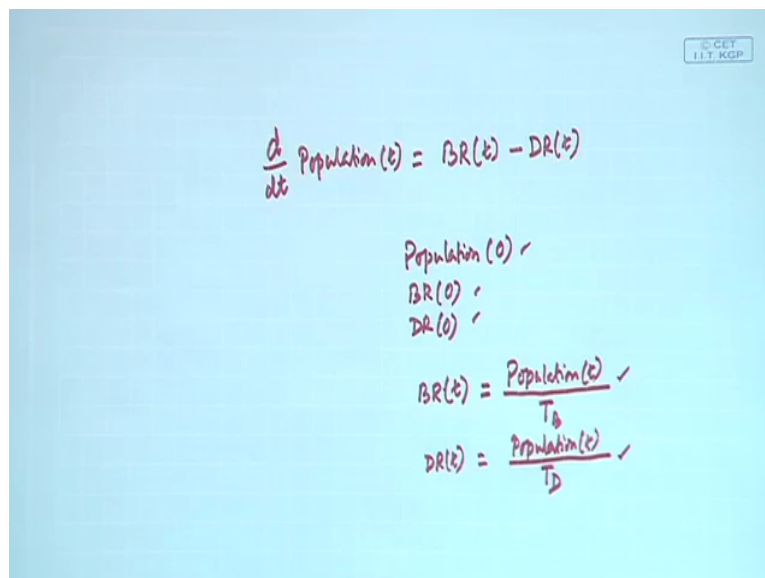 © CET
I.I.T. KGP
d/dt Population(t) = BR(t) - DR(t)
Population(0) ✓
BR(0) ✓
DR(0) ✓
BR(t) = Population(t)/T_B ✓
DR(t) = Population(t)/T_D ✓